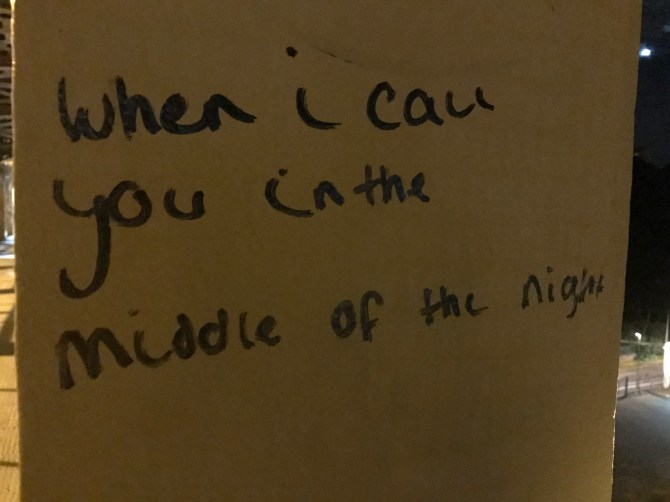 when i call
you in the
middle of the night